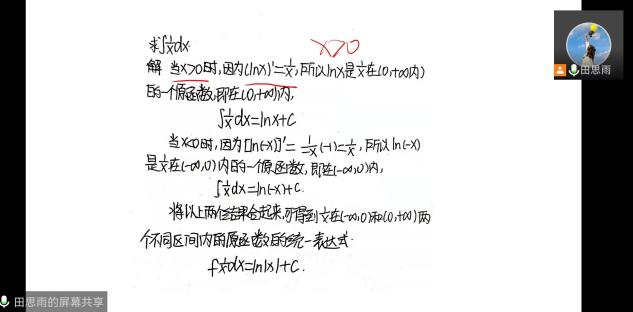 求∫1/x dx.
x>0
解 当x>0时,因为(lnx)'=1/x,所以lnx是1/x在(0,+∞内)
的一个原函数,即在(0,+∞)内,
∫1/x dx=lnx+C
当x<0时,因为[ln(-x)]'=1/-x(-1)=1/x,所以ln(-x)
是1/x在(-∞,0)内的一个原函数,即在(-∞,0)内,
∫1/x dx=ln(-x)+C.
将以上两个结果合起来,可得到1/x在(-∞,0)和(0,+∞)两
个不同区间内的原函数的统一表达式.
∫1/x dx=ln|x|+C.
田思雨
田思雨的屏幕共享